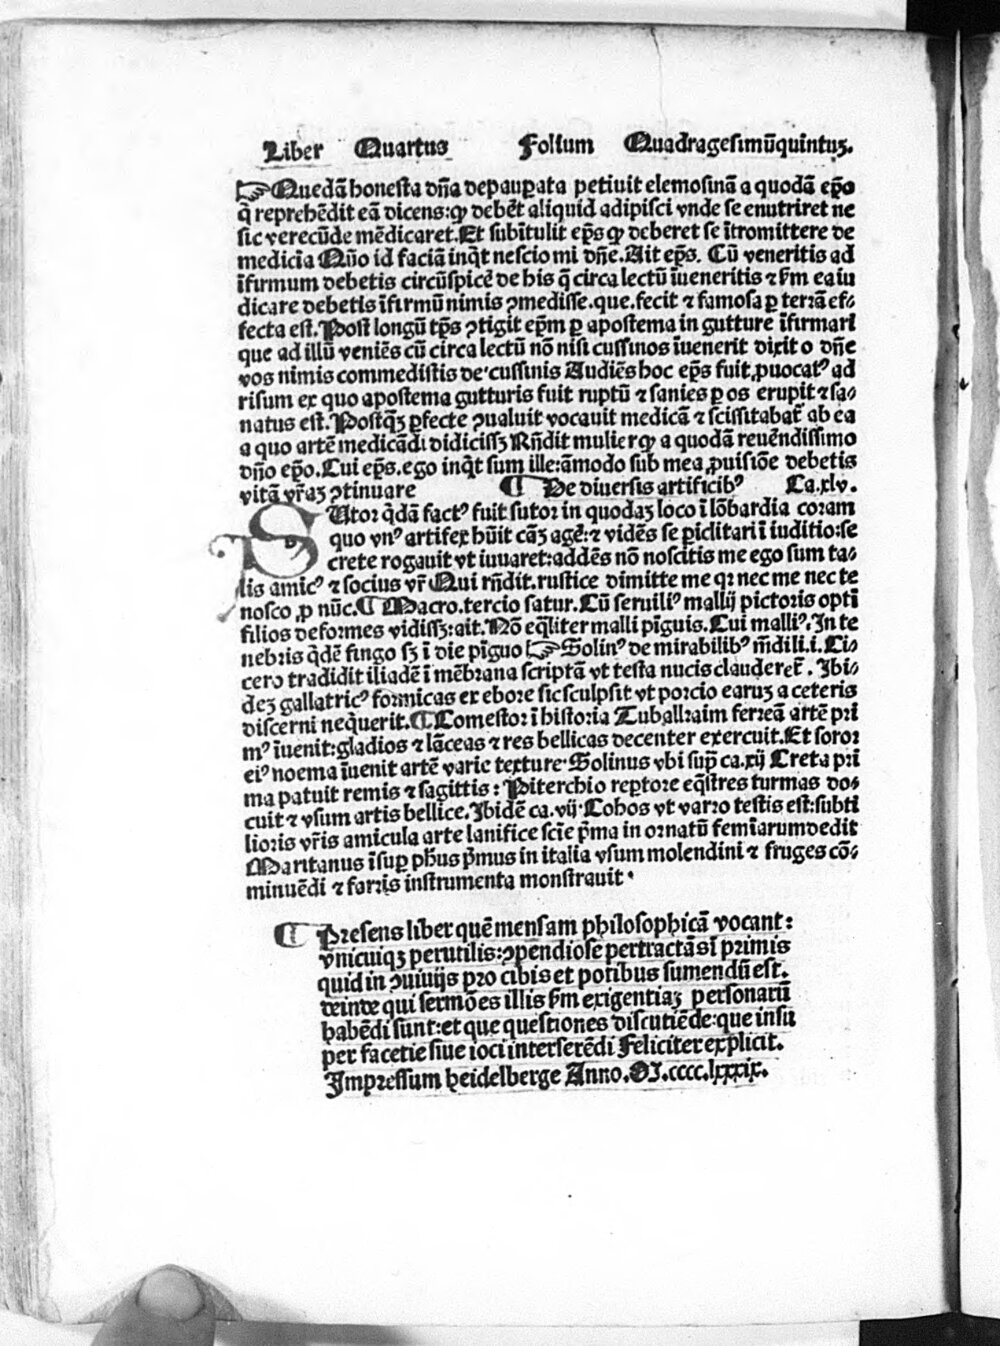 Liber Quartus Folium Quadragesimūquintuʒ.
☞Quedā honesta dn̄a depauꝑata petiuit elemosinā a quodā ep̄o
q̄ reprehēdit eā dicens: ꝙ debet̄ aliquid adipisci vnde se enutriret ne
sic verecūde mēdicaret. Et subītulit ep̄s ꝙ deberet se ītromittere de
medicīa Quō id faciā inq̄t nescio mi dn̄e. Ait ep̄s. Cū veneritis ad
īfirmum debetis circūspicē de his q̄ circa lectū īueneritis ⁊ ẜm ea iu
dicare debetis īfirmū nimis ꝯmedisse. que. fecit ⁊ famosa ꝑ terrā ef⸗
fecta est. Post longū tp̄s ꝯtigit ep̄m ꝑ apostema in gutture īfirmari
que ad illū veniēs cū circa lectū nō nisi cussinos īuenerit dixit o dn̄e
vos nimis commedistis de cussinis Audiēs hoc ep̄s fuit ꝓuocatꝰ ad
risum ex quo apostema gutturis fuit ruptū ⁊ sanies ꝑ os erupit ⁊ sa⸗
natus est. Postq̄ʒ ꝑfecte ꝯualuit vocauit medicā ⁊ scissitabat̄ ab ea
a quo artē medicādi didicissʒ Rn̄dit mulier ꝙ a quodā reuēndissimo
dn̄o ep̄o. Cui ep̄s. ego inq̄t sum ille: āmodo sub mea ꝓuisiōe debetis
vitā vr̄aʒ ꝯtinuare ¶ De diuersis artificibꝰ Ca. xlv.
SUtor q̄dā factꝰ fuit sutor in quodaʒ loco ī lōbardia coram
quo vnꝰ artifex hūit cāʒ agē: ⁊ vidēs se ꝑiclitari ī iuditio: se
crete rogauit vt iuuaret: addēs nō noscitis me ego sum ta⸗
lis amicꝰ ⁊ socius vr̄ Qui rn̄dit. rustice dimitte me qꝛ nec me nec te
nosco ꝓ nūc. ¶ Macro. tercio satur. Cū seruiliꝰ mallij pictoris optī
filios deformes vidissʒ: ait. Nō eq̄liter malli pīguis. Cui malliꝰ. In te
nebris q̄dē fingo sʒ ī die pīguo ☞Solinꝰ de mirabilibꝰ m̄di li. i. Ci⸗
cero tradidit iliadē ī mēbrana scriptā vt testa nucis clauderet̄. Ibi⸗
deʒ gallatricꝰ formicas ex ebore sic sculpsit vt porcio earuʒ a ceteris
discerni neq̄uerit. ¶ Comestor ī historia Tuballraim ferreā artē pri
mꝰ īuenit: gladios ⁊ lāceas ⁊ res bellicas decenter exercuit. Et soror
eiꝰ noema īuenit artē varie texture. Solinus vbi sup̄ ca. xij Creta pri
ma patuit remis ⁊ sagittis: Piterchio reꝑtore eq̄stres turmas do⸗
cuit ⁊ vsum artis bellice. Ibidē ca. vij. Cohos vt varro testis est: subti
lioris vr̄is amicula arte lanifice scīe p̄ma in ornatū femīarum dedit
Maritanus īsuꝑ ph̄us p̄mus in italia vsum molendini ⁊ fruges cō⸗
minuēdi ⁊ farris instrumenta monstrauit.
¶ Presens liber quē mensam philosophicā vocant:
vnicuiqʒ perutilis: ꝯpendiose pertractās ī primis
quid in ꝯuiuijs pro cibis et potibus sumendū est.
deinde qui sermōes illis ẜm exigentiaʒ personarū
habēdi sunt: et que questiones discutiēde: que insu
per facetie siue ioci interserēdi Feliciter explicit.
Impressum heidelberge Anno. M.cccc.lxxxix.